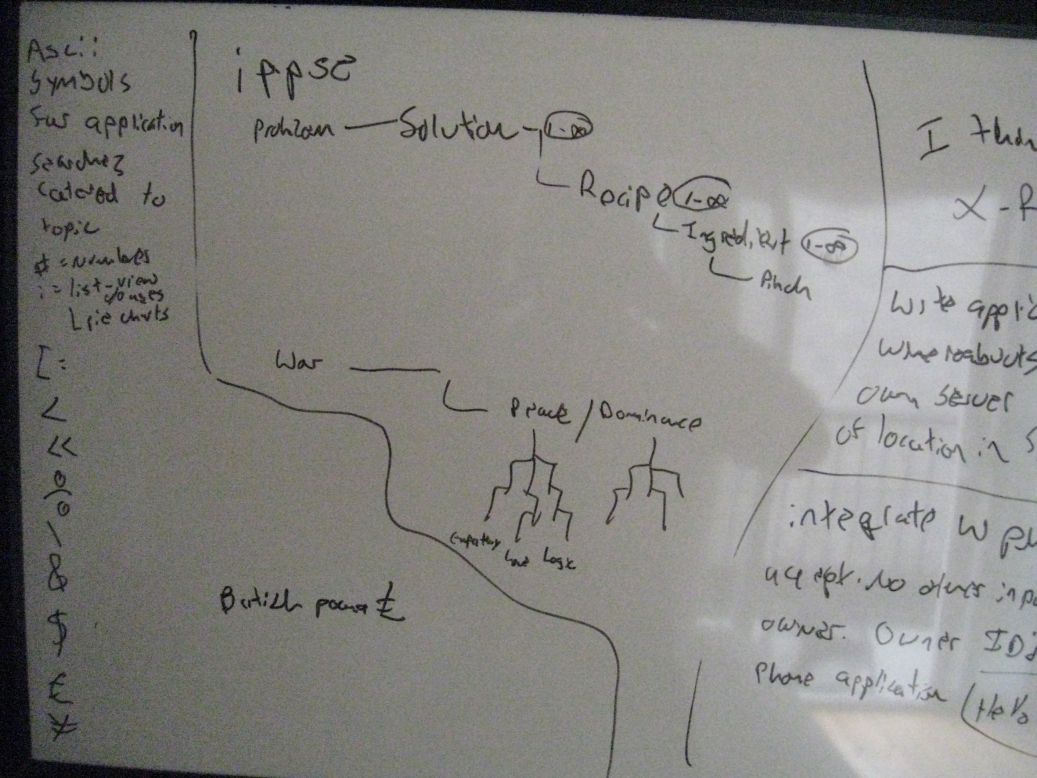 Ascii
Symbols
for application
searches
catered to
topic
# = Numbers
: = list-view
pie charts
[:
<
<<
%
\
&
$
£
¥
ippse
Problem — Solution - 1-∞
Recipe 1-∞
Ingredient 1-∞
Pinch
War
Peace / Dominance
Empathy Love Logic
British pound £
I
X-R
Write applic
whereabouts
own server
of location in S
integrate w
accept. No others
owner. Owner ID
Phone application (Hello